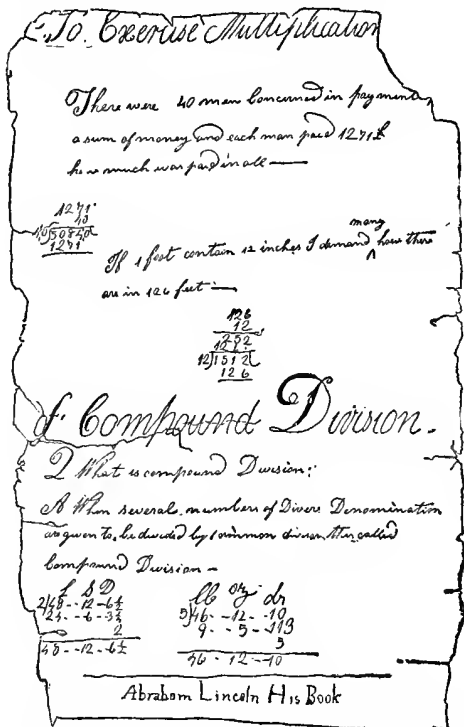 To Exercise Multiplication
There were 40 men Concerned in payment
a sum of money and each man paid 1271£
how much was paid in all —
1271
40
40)50840(
1271
many
If 1 foot contain 12 inches I demand ^ how there
are in 126 feet —
126
12
252
12)1512(
126
of Compound Division.
Q What is compound Division:
A When several numbers of Divers Denomination
are given to be divided by common divisor this called
Compound Division —
£ S D
2)48--12-6½
24--6-3¼
2
48--12-6½
lb oz dr
5)46--12--10
9--5--113
5
46-12--10
Abraham Lincoln His Book